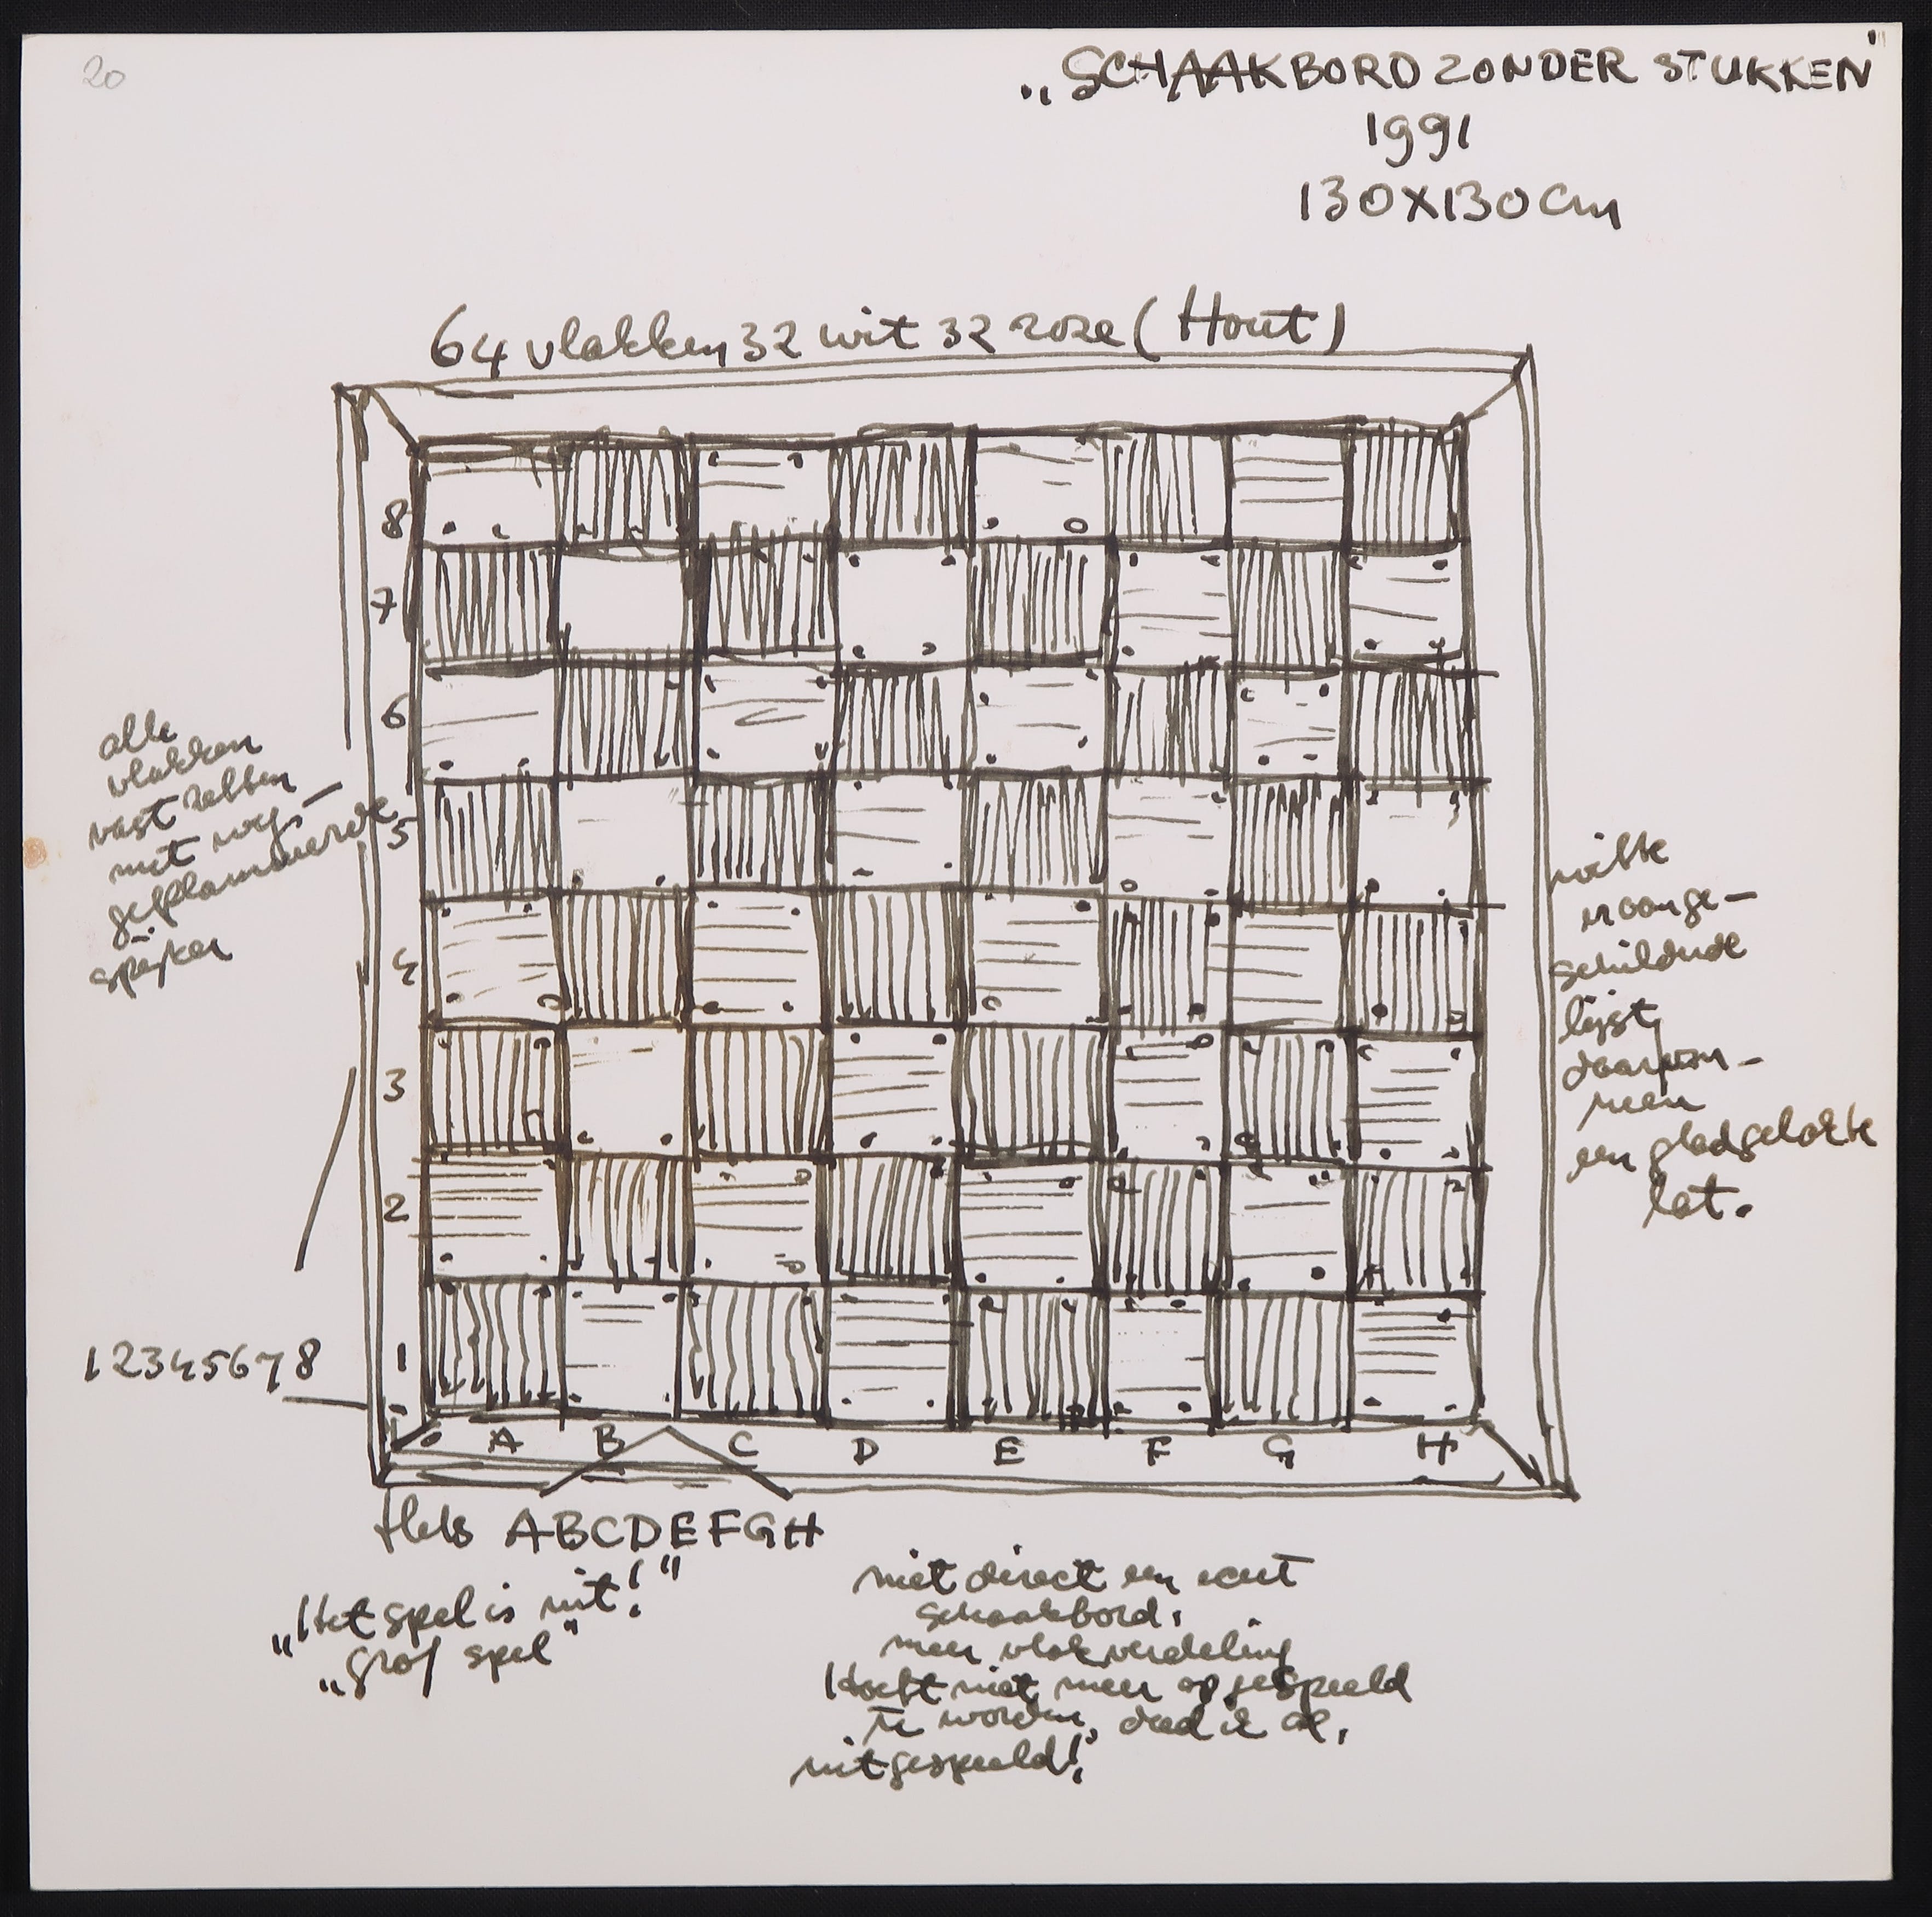 20
„SCHAAKBORD ZONDER STUKKEN"
1991
130X130 cm
64 vlakken 32 wit 32 roze (Hout)
8
7
6
5
4
3
2
1
A B C D E F G H
alle
vlakken
vast zetten
met
spijker
witte
schilderde
lijst
een
lat.
12345678
ABCDEFGH
„Het spel is uit!"
„grof spel"
niet direct een echt
schaakbord.
meer vlakverdeling
Hoeft niet meer op gespeeld
te worden,
uitgespeeld!